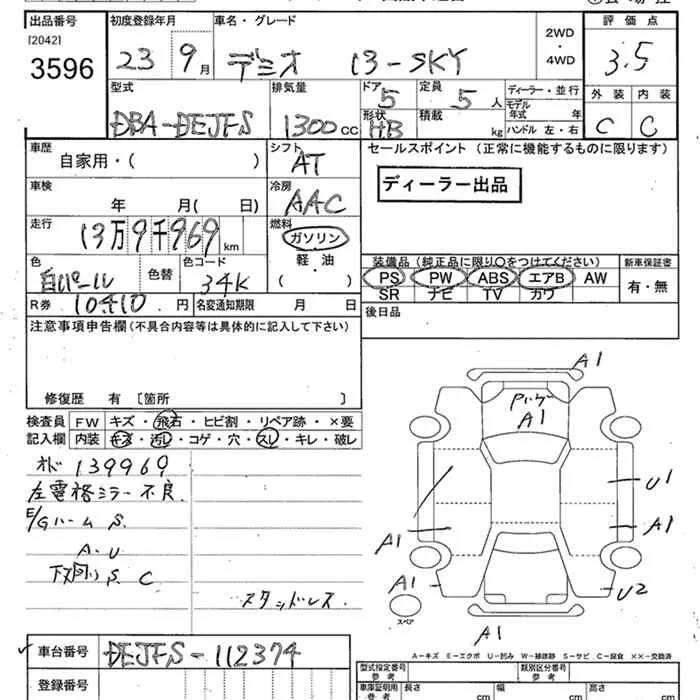 出品番号 初度登録年月 車名・グレード 2WD・4WD 評価点
[2042]
3596 23 9月 デミオ 13-SKY 3.5
型式 排気量 ドア 5 定員 5人 ディーラー・並行 外装 内装
DBA-DEJFS 1300cc 形状 HB 積載 kg モデル年式 年 C C
ハンドル 左・右
車歴 自家用・( ) シフト AT セールスポイント (正常に機能するものに限ります)
車検 年 月( 日) 冷房 AAC ディーラー出品
走行 13万9千969km 燃料 ガソリン
軽・油
( )
色 白パール 色替 色コード 34K
装備品(純正品に限り○をつけてください) 新車保証書
PS PW ABS エアB AW 有・無
SR ナビ TV カワ
R券 10410円 名変通知期限 月 日 後日品
注意事項申告欄(不具合内容等は具体的に記入して下さい)
修復歴 有 [箇所 ]
検査員 FW キズ・飛石・ヒビ割・リペア跡・×要
記入欄 内装 キズ・汚レ・コゲ・穴・スレ・キレ・破レ
オド 139969
左電格ミラー不良
E/Gルーム S.
A.U
下廻り S. C
スタッドレス.
A1
A1
U1
A1
A1
A1
U2
A1
スペア
A-キズ E-エクボ U-凹み W-補修跡 S-サビ C-腐食 ××-交換済
車台番号 DEJFS-112374
登録番号
型式指定番号 参考 類別区分番号 参考
車庫証明用 参考 長さ cm 幅 cm 高さ cm